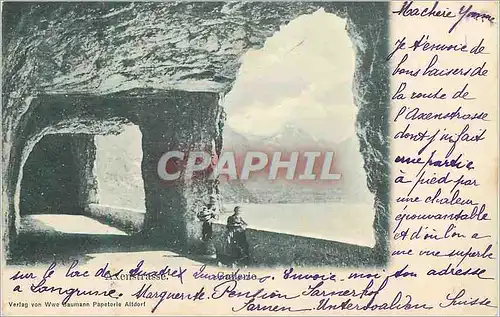 Ma chère Yvonne
Je t'envoie de
bons baisers de
la route de
l'Axenstrasse
dont j'ai fait
une partie
à pied par
une chaleur
épouvantable
et d'où l'on a
une vue superbe
sur le lac des Quatre
Envoie moi son adresse
à Langrune. Marguerite. Pension Sarnerhof
Sarnen. Unterwalden Suisse
CPAPHIL
Axenstrasse. Gallerie
Verlag von Wwe Baumann Papeterie Altdorf